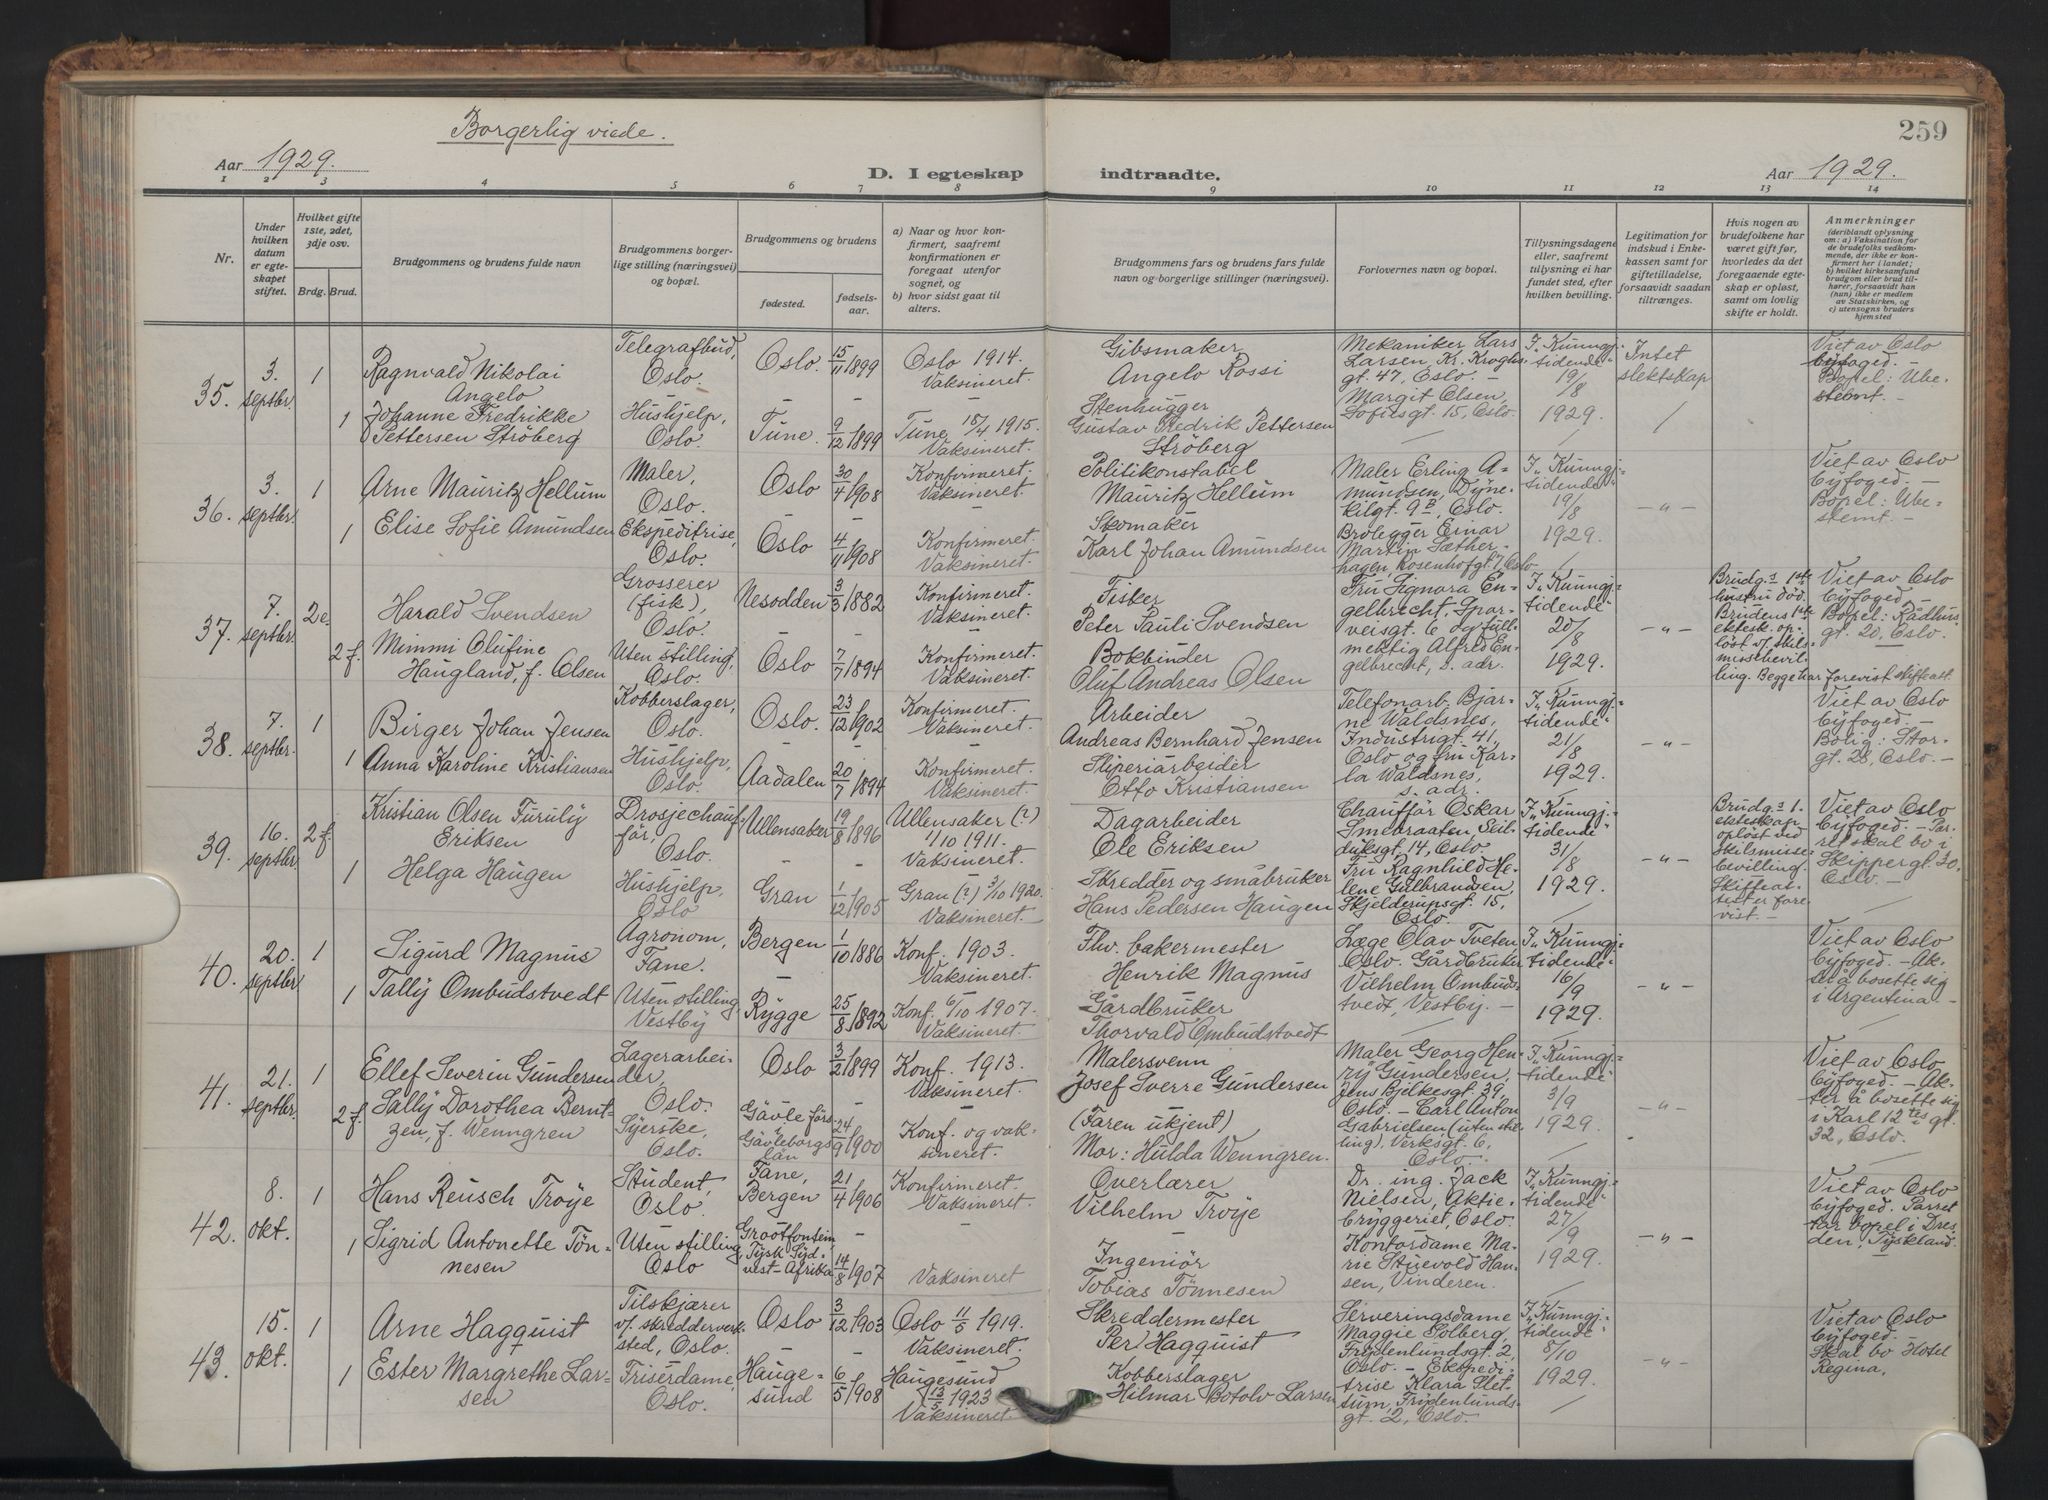 Borgerlig viede.
259
Aar 1929.
D. I egteskap
indtraadte.
Aar 1929.
1 2 3 4 5 6 7 8 9 10 11 12 13 14
Nr.
Under
hvilken
datum
er egte-
skapet
stiftet.
Hvilket gifte
1ste, 2det,
3dje osv.
Brdg. Brud.
Brudgommens og brudens fulde navn
Brudgommens borger-
lige stilling (næringsvei)
og bopæl.
Brudgommens og brudens
fødested.
fødsels-
aar.
a) Naar og hvor kon-
firmert, saafremt
konfirmationen er
foregaat utenfor
sognet, og
b) hvor sidst gaat til
alters.
Brudgommens fars og brudens fars fulde
navn og borgerlige stillinger (næringsvei).
Forlovernes navn og bopæl.
Tillysningsdagene
eller, saafremt
tillysning ei har
fundet sted, efter
hvilken bevilling.
Legitimation for
indskud i Enke-
kassen samt for
giftetilladelse,
forsaavidt saadan
tiltrænges.
Hvis nogen av
brudefolkene har
været gift før,
hvorledes da det
foregaaende egte-
skap er opløst,
samt om lovlig
skifte er holdt.
Anmerkninger
(deriblandt oplysning
om: a) Vaksination for
de brudefolks vedkom-
mende, der ikke er kon-
firmert her i landet;
b) hvilket kirkesamfund
brudgom eller brud til-
hører, forsaavidt han
(hun) ikke er medlem
av Statskirken, og
c) utensogns bruders
hjemsted
35.
3.
septbr.
1
Ragnvald Nikolai
Angelo
Telegrafbud,
Oslo.
Oslo. 15/11 1899
Oslo 1914.
Vaksineret.
1
Johanne Fredrikke
Pettersen Ströberg
Hushjelp,
Oslo
Tune. 9/12 1899
Tune 18/4 1915.
Vaksineret.
Gibsmaker
Angelo Rossi
Stenhugger
Gustav Fredrik Pettersen
Ströberg
Mekaniker Lars
Larsen, Kr. Kroghs
gt. 47, Oslo. –
Margit Olsen,
Sofiesgt. 15, Oslo.
I „Kunngj.
tidende“
19/8
1929.
Intet
slektskap
Viet av Oslo
byfoged.
Bopel: Ube-
stemt. –
36.
3.
septbr.
1
Arne Mauritz Hellum
Maler,
Oslo.
Oslo 30/4 1908
Konfirmeret.
Vaksineret.
1
Elise Sofie Amundsen
Ekspeditrise,
Oslo.
Oslo 4/11 1908
Konfirmeret.
Vaksineret.
Politikonstabel
Mauritz Hellum
Skomaker
Karl Johan Amundsen
Maler Erling A-
mundsen, Dyne-
kilgt. 9B, Oslo.
Brolegger Einar
Martin Sæther-
hagen, Rosenhofgt. 17, Oslo
I „Kunngj.-
tidende“
19/8
1929.
– „ –
Viet av Oslo
byfoged. –
Bopel: Ube-
stemt. –
37.
7.
septbr.
2e.
Harald Svendsen
Grosserer
(fisk),
Oslo.
Nesodden 3/3 1882
Konfirmeret.
Vaksineret.
2 f.
Mimmi Olufine
Haugland, f. Olsen
Uten stilling,
Oslo.
Oslo 7/7 1894
Konfirmeret.
Vaksineret.
Fisker
Peter Pauli Svendsen
Bokbinder
Oluf Andreas Olsen
Fru Signora En-
gelbrecht, Spor-
veisgt. 6 og full-
mektig Alfred En-
gelbrecht, s. adr.
I „Kunngj.
tidende“
20/8
1929.
– „ –
Brudg.s 1ste
hustru död.
Brudens 1ste
ektesk. op-
löst v/ skils-
missebevil-
ling. Begge har forevist skifteatt.
Viet av Oslo
byfoged. –
Bopel: Rådhus
gt. 20, Oslo.
38.
7.
septbr.
1
Birger Johan Jensen
Kobberslager,
Oslo.
Oslo. 23/12 1902
Konfirmeret.
Vaksineret.
1
Anna Karoline Kristiansen
Hushjelp,
Oslo.
Aadalen 20/7 1894
Konfirmeret.
Vaksineret.
Arbeider
Andreas Bernhard Jensen
Sliperiarbeider
Otto Kristiansen
Telefonarb. Bjar-
ne Waldsnes,
Industrigt. 41,
Oslo og fru Kar-
la Waldsnes,
s. adr.
I „Kunngj.-
tidende“
21/8
1929.
– „ –
Viet av Oslo
byfoged. –
Bolig: Stor-
gt. 28, Oslo. –
39.
16.
septbr.
2 f.
Kristian Olsen Furuly
Eriksen
Drosjechauf-
för,
Oslo.
Ullensaker 19/8 1896
Ullensaker (?)
1/10 1911.
Vaksineret.
1
Helga Haugen
Hushjelp,
Oslo
Gran 1/12 1905
Gran (?) 3/10 1920.
Vaksineret.
Dagarbeider
Ole Eriksen
Skredder og småbruker
Hans Pedersen Haugen
Chaufför Oskar
Smebraaten, Seil-
duksgt. 14, Oslo.
Fru Ragnhild He-
lene Gulbrandsen,
Skjelderupsgt. 15,
Oslo.
I „Kunngj.-
tidende“
31/8
1929.
– „ –
Brudg.s 1.
ekteskap
oplöst ved
skilsmisse-
bevilling.
Skifteat-
test er fore-
vist. –
Viet av Oslo
byfoged. – Par-
ret skal bo i
Skippergt. 30,
Oslo. –
40.
20.
septbr
1
Sigurd Magnus
Agronom,
Fane.
Bergen 1/10 1886
Konf. 1903.
Vaksineret.
1
Tally Ombudstvedt
Uten stilling,
Vestby
Rygge 25/8 1892
Konf. 6/10 1907.
Vaksineret.
Fhv. bakermester
Henrik Magnus
Gårdbruker
Thorvald Ombudstvedt
Læge Olav Tveten
Oslo. Gårdbruker
Vilhelm Ombuds-
tvedt, Vestby. –
I „Kunngj.-
tidende“
16/9
1929.
– „ –
Viet av Oslo
byfoged. – Ak-
ter å bosette sig
i Argentina. –
41.
21.
septbr.
1
Ellef Severin Gundersen
Lagerarbei-
der,
Oslo.
Oslo 3/2 1899
Konf. 1913.
Vaksineret.
2 f.
Sally Dorothea Bernt-
zen, f. Wenngren
Syerske,
Oslo.
Gävle förs.
i
Gävleborgs
län
24/9 1900
Konf. og vak-
sineret.
Malersvenn
Josef Sverre Gundersen
(Faren ukjent)
Mor: Hulda Wenngren.
Maler Georg Hen-
ry Gundersen,
Jens Bjelkesgt. 39,
Oslo. – Carl Anton
Gabrielsen (uten stil-
ling), Verksgt. 6,
Oslo.
I „Kunngj.-
tidende“
3/9
1929.
– „ –
Viet av Oslo
byfoged. – Ak-
ter å bosette sig
i Karl 12tes gt.
32, Oslo.
42.
8.
okt.
1
Hans Reusch Troye
Student,
Oslo.
Fane,
Bergen 21/4 1906
Konfirmeret.
Vaksineret.
1
Sigrid Antonette Tön-
nesen
Uten stilling,
Oslo
Grootfontein,
Tysk Syd-
vest-Afrika
14/8 1907
Vaksineret
Overlærer
Vilhelm Troye
Ingeniör
Tobias Tönnesen
Dr. ing. Jack
Nielsen, Aktie-
bryggeriet, Oslo.
Kontordame Ma-
rie Stuevold Han-
sen, Vinderen.
I „Kunngj.-
tidende“
27/9
1929.
– „ –
Viet av Oslo
byfoged. Parret
tar bopel i Dres-
den, Tyskland.
43.
15.
okt.
1
Arne Hagquist
Tilskjærer
v/ skredderverk-
sted, Oslo.
Oslo 3/12 1903
Oslo 11/5 1919.
Vaksineret.
1
Ester Margrethe Lar-
sen
Friserdame,
Oslo.
Hauge-
sund 6/5 1908
Haugesund
13/5 1923
Vaksineret.
Skreddermester
Per Hagquist
Kobberslager
Hilmar Botolv Larsen
Serveringsdame
Maggie Solberg,
Frydenlundsgt. 2,
Oslo. – Ekspedi-
trise Klara Slet-
tum, Frydenlunds-
gt. 2, Oslo.
I „Kunngj.-
tidende“
8/10
1929.
– „ –
Viet av Oslo
byfoged. –
Skal bo Hotel
Regina.